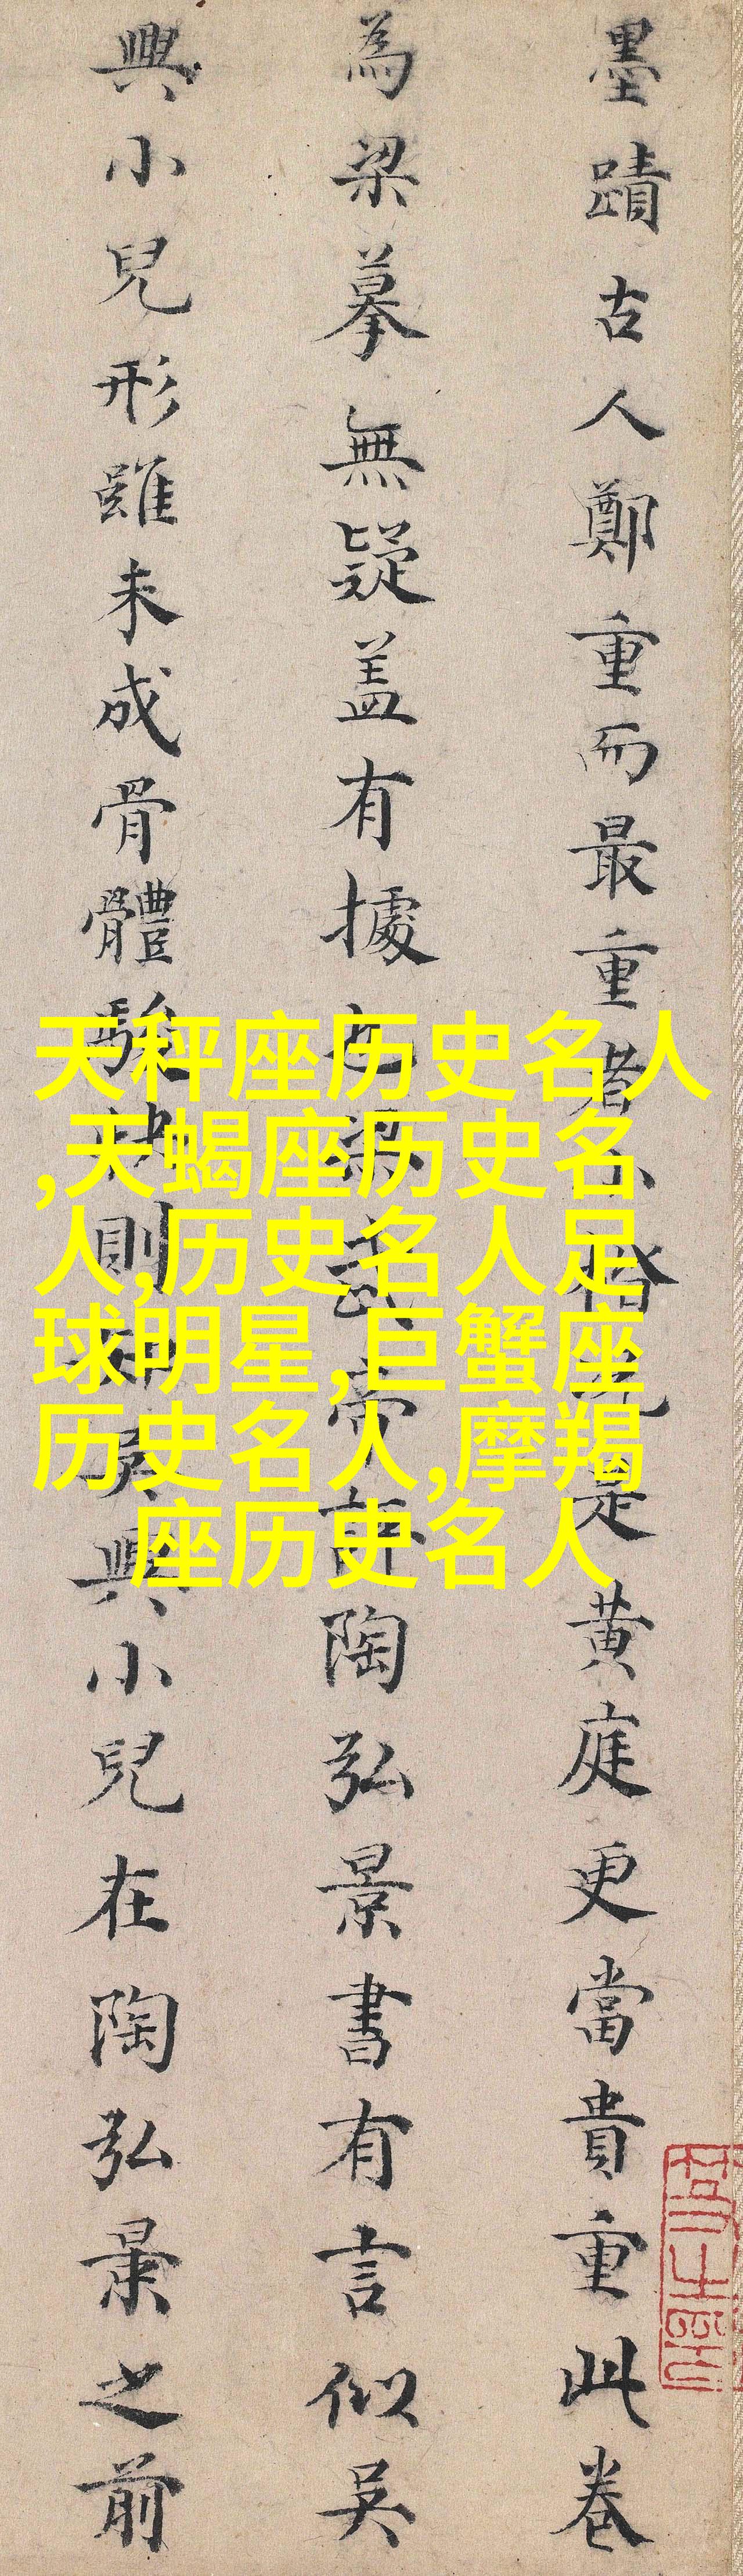 墨蹟古人鄭重而最重者小楷况是黄庭更當貴重此卷
為梁摹無疑盖有據也梁武帝評陶弘景書有言似吳
興小兒形雖未成骨體駿快則知吳興小兒在陶弘景之前
天秤座历史名人
,天蝎座历史名
人,历史名人足
球明星,巨蟹座
历史名人,摩羯
座历史名人